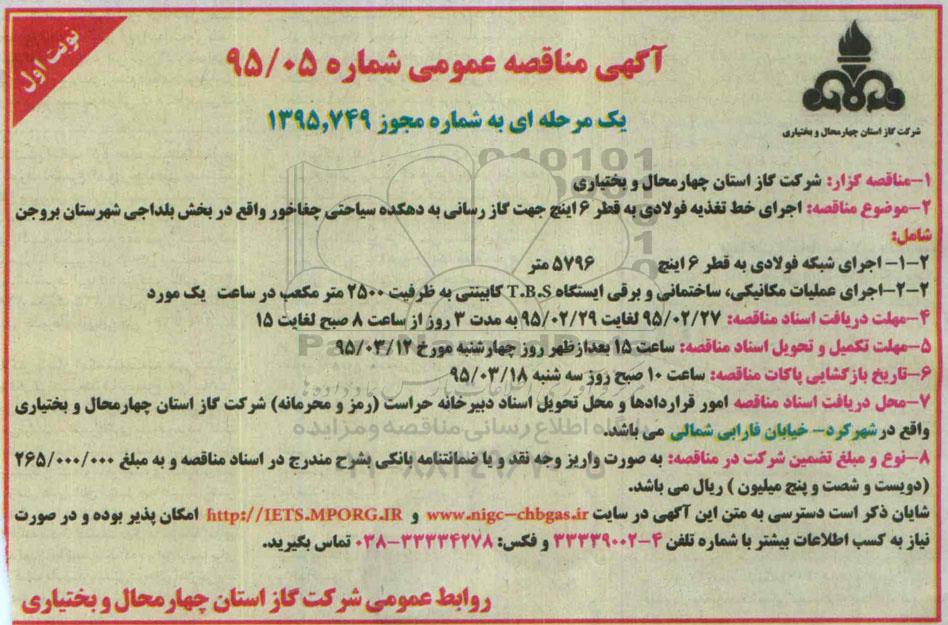 نوبت اول
آگهی مناقصه عمومی شماره ۹۵/۰۵
یک مرحله ای به شماره مجوز ۱۳۹۵,۷۴۹
شرکت گاز استان چهارمحال و بختیاری
۱-مناقصه گزار: شرکت گاز استان چهارمحال و بختیاری
۲-موضوع مناقصه: اجرای خط تغذیه فولادی به قطر ۶ اینچ جهت گاز رسانی به دهکده سیاحتی چغاخور واقع در بخش بلداجی شهرستان بروجن
شامل:
۲-۱- اجرای شبکه فولادی به قطر ۶ اینچ ۵۷۹۶ متر
۲-۲-اجرای عملیات مکانیکی، ساختمانی و برقی ایستگاه T.B.S کابینتی به ظرفیت ۲۵۰۰ متر مکعب در ساعت یک مورد
۴-مهلت دریافت اسناد مناقصه: ۹۵/۰۲/۲۷ لغایت ۹۵/۰۲/۲۹ به مدت ۳ روز از ساعت ۸ صبح لغایت ۱۵
۵-مهلت تکمیل و تحویل اسناد مناقصه: ساعت ۱۵ بعدازظهر روز چهارشنبه مورخ ۹۵/۰۳/۱۲
۶-تاریخ بازگشایی پاکات مناقصه: ساعت ۱۰ صبح روز سه شنبه ۹۵/۰۳/۱۸
۷-محل دریافت اسناد مناقصه امور قراردادها و محل تحویل اسناد دبیرخانه حراست (رمز و محرمانه) شرکت گاز استان چهارمحال و بختیاری
واقع در شهرکرد- خیابان فارابی شمالی می باشد.
۸-نوع و مبلغ تضمین شرکت در مناقصه: به صورت واریز وجه نقد و یا ضمانتنامه بانکی بشرح مندرج در اسناد مناقصه و به مبلغ ۲۶۵/۰۰۰/۰۰۰
(دویست و شصت و پنج میلیون ) ریال می باشد.
شایان ذکر است دسترسی به متن این آگهی در سایت www.nigc-chbgas.ir و http://IETS.MPORG.IR امکان پذیر بوده و در صورت
نیاز به کسب اطلاعات بیشتر با شماره تلفن ۴-۳۳۳۳۹۰۰۲ و فکس: ۳۳۳۳۴۲۷۸-۰۳۸ تماس بگیرید.
روابط عمومی شرکت گاز استان چهارمحال و بختیاری